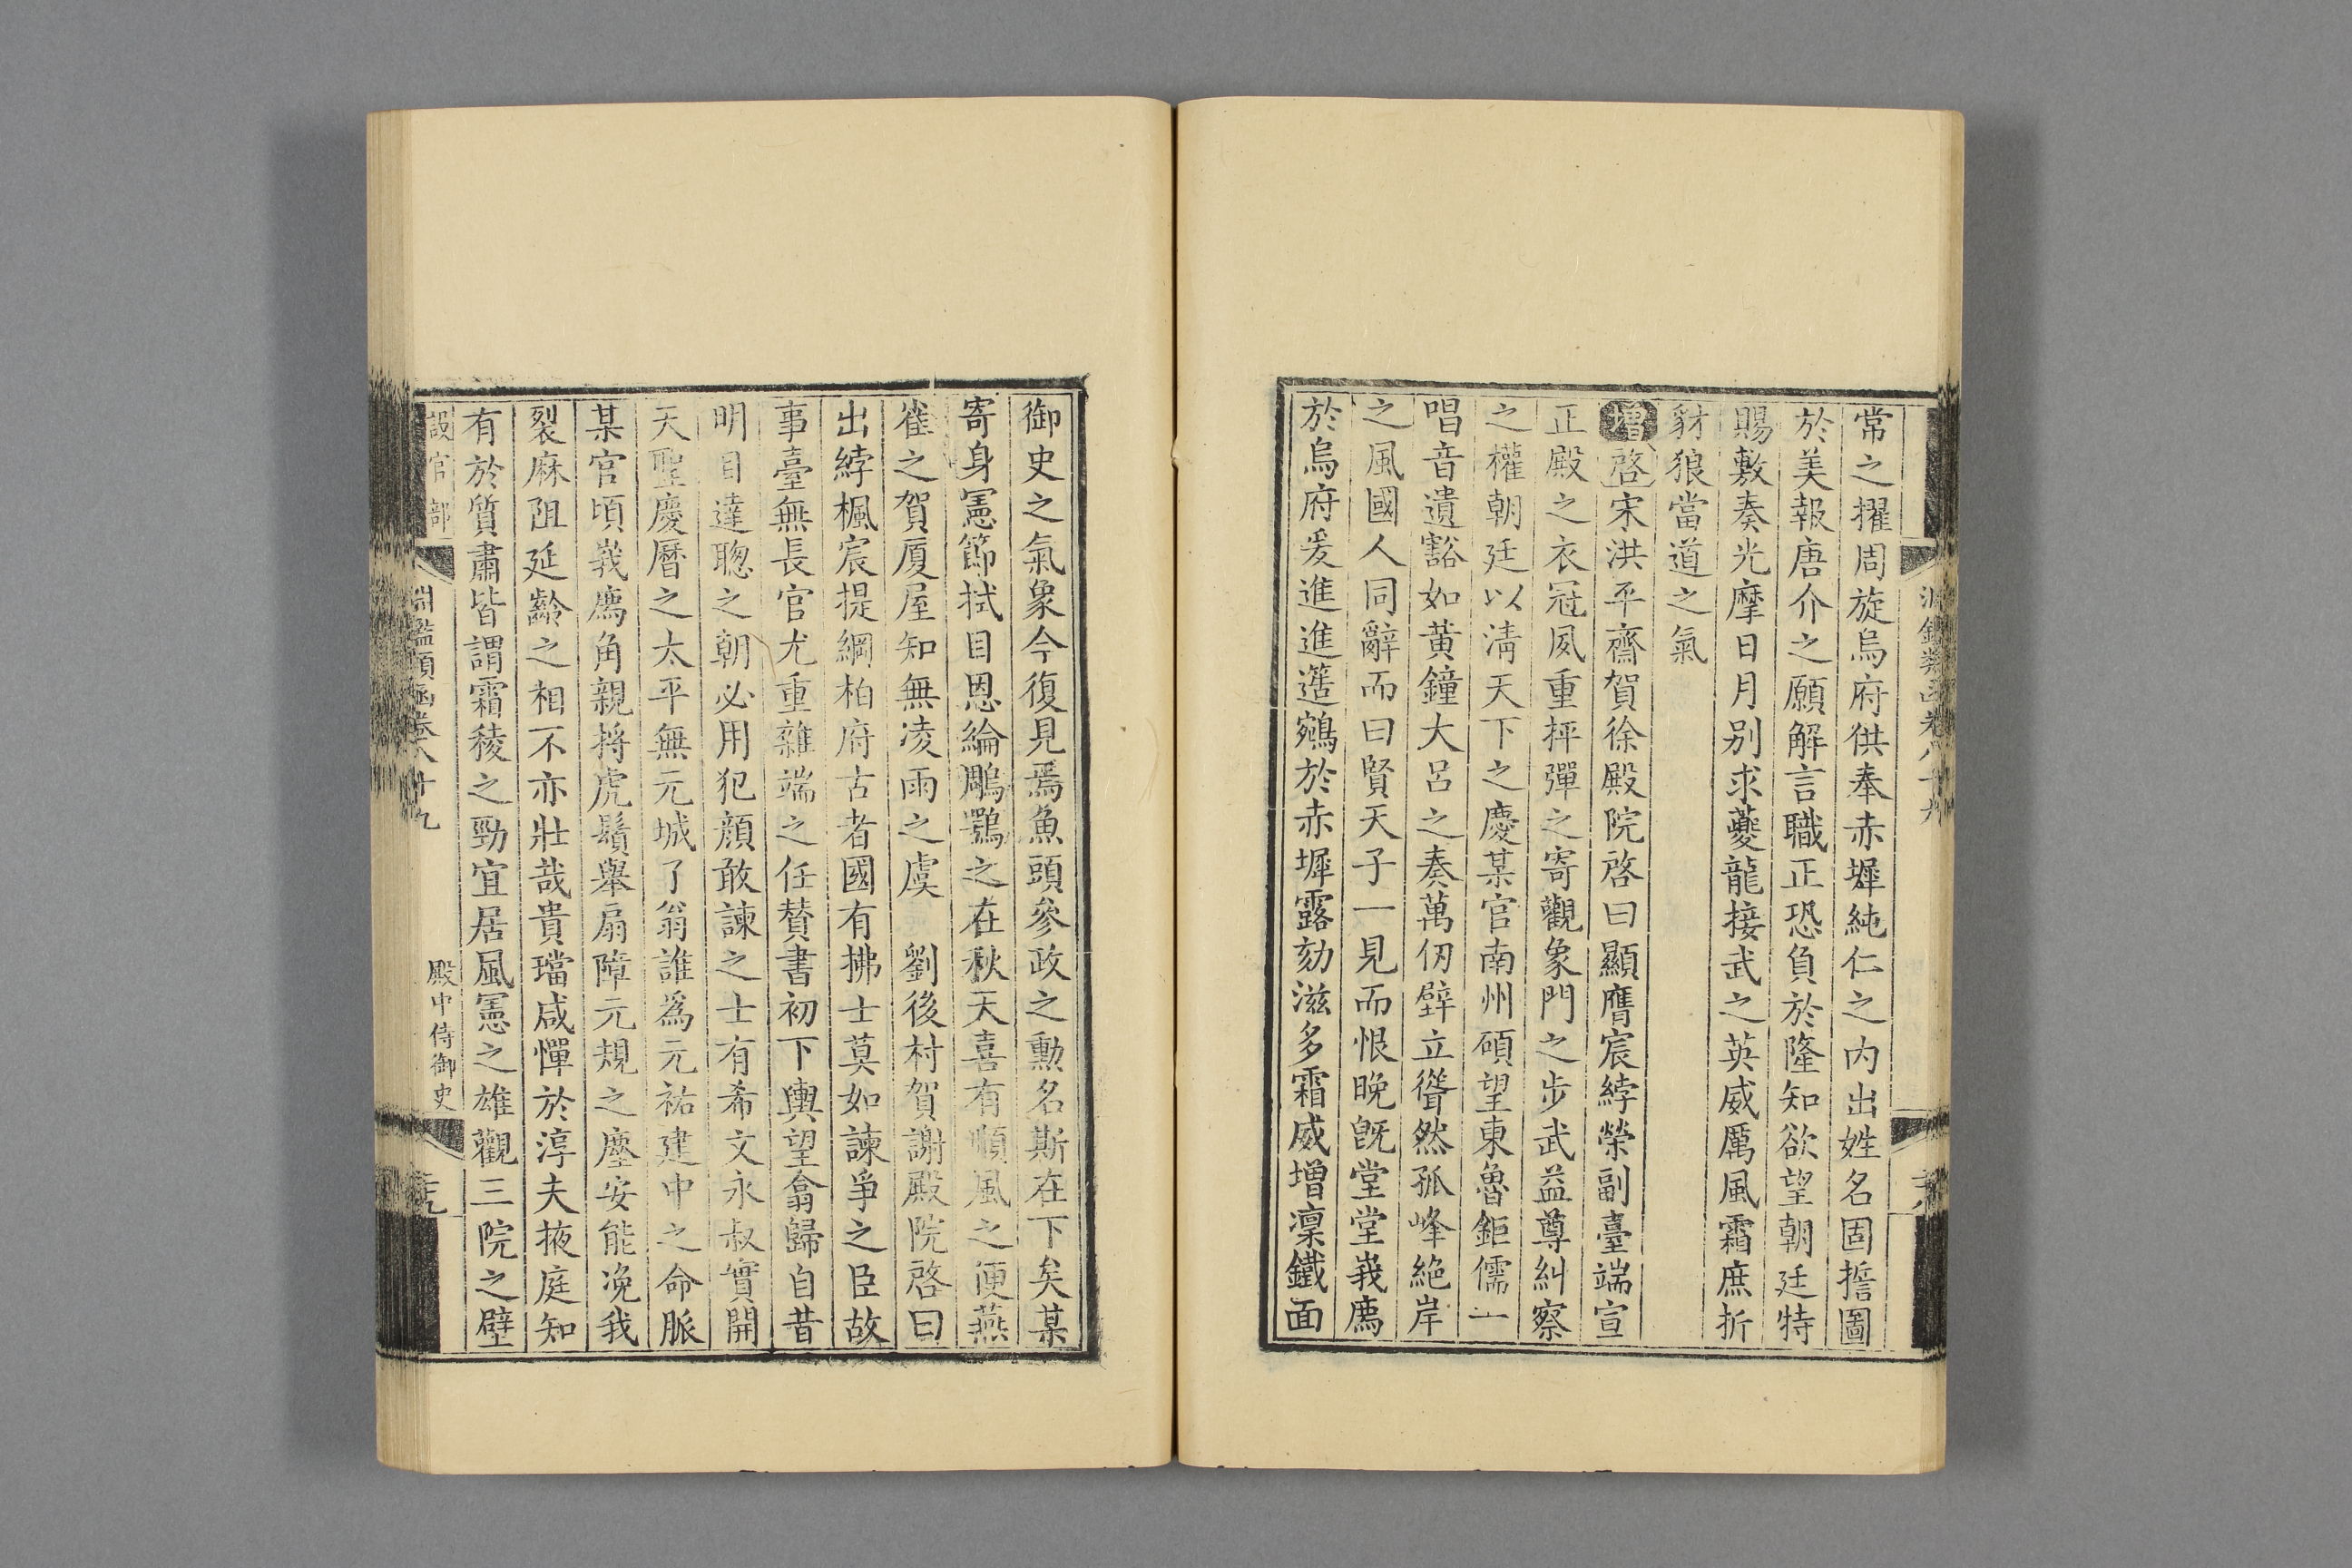 常之擢周旋烏府供奉赤墀純仁之内出姓名固誓圖
於美報唐介之願解言職正恐負於隆知欲望朝廷特
賜敷奏光摩日月别求夔龍接武之英威厲風霜庶折
豺狼當道之氣
增啓宋洪平齋賀徐殿院啓曰顯膺宸綍榮副臺端宣
正殿之衣冠夙重抨彈之寄觀象門之步武益尊糾察
之權朝廷以淸天下之慶某官南州碩望東魯鉅儒一
唱音遺豁如黃鐘大呂之奏萬仭壁立聳然孤峰絶岸
之風國人同辭而曰賢天子一見而恨晚旣堂堂峩廌
於烏府爰進進簉鵷於赤墀露劾滋多霜威增凜鐵面
御史之氣象今復見焉魚頭參政之勳名斯在下矣某
寄身憲節拭目恩綸鵰鶚之在秋天喜有順風之便燕
雀之賀厦屋知無凌雨之虞　劉後村賀謝殿院啓曰
出綍楓宸提綱柏府古者國有拂士莫如諫爭之臣故
事臺無長官尤重雜端之任贊書初下輿望翕歸自昔
明目達聰之朝必用犯顔敢諫之士有希文永叔實開
天聖慶曆之太平無元城了翁誰爲元祐建中之命脈
某官頃峩廌角親捋虎鬚舉扇障元規之塵安能浼我
裂麻阻延齡之相不亦壯哉貴璫咸憚於淳夫掖庭知
有於質肅皆謂霜稜之勁宜居風憲之雄觀三院之壁
設官部
淵鑑類函卷八十九
殿中侍御史